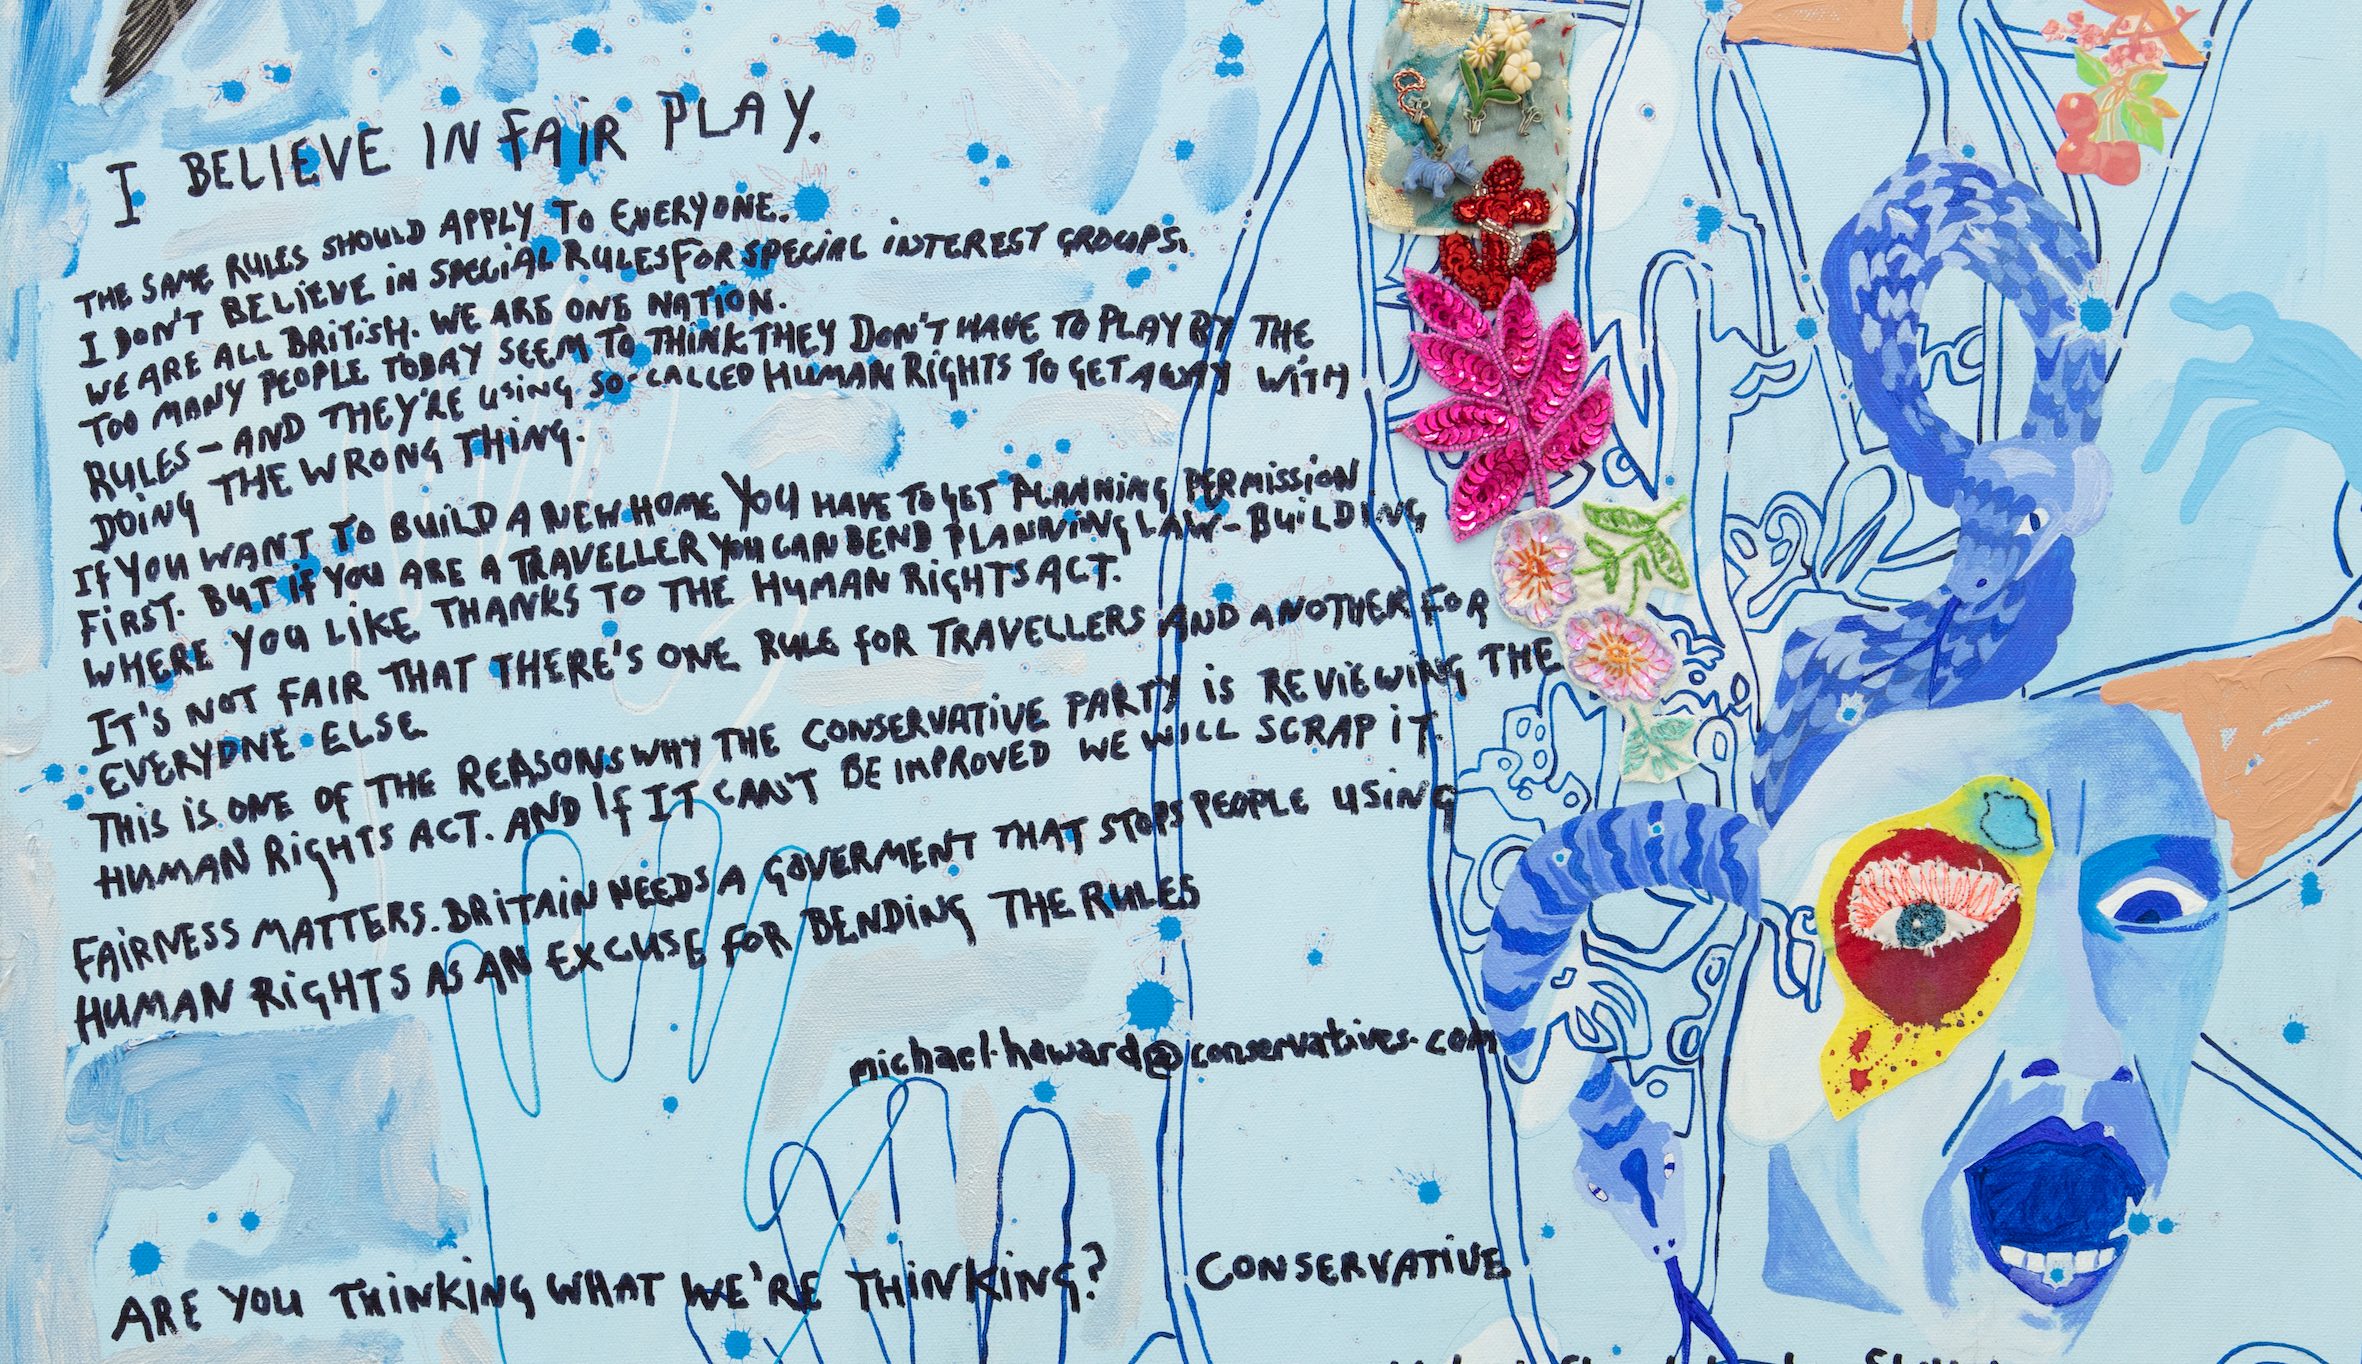 I BELIEVE IN FAIR PLAY.
THE SAME RULES SHOULD APPLY TO EVERYONE.
I DON'T BELIEVE IN SPECIAL RULES FOR SPECIAL INTEREST GROUPS.
WE ARE ALL BRITISH. WE ARE ONE NATION.
TOO MANY PEOPLE TODAY SEEM TO THINK THEY DON'T HAVE TO PLAY BY THE
RULES – AND THEY'RE USING SO-CALLED HUMAN RIGHTS TO GET AWAY WITH
DOING THE WRONG THING.
IF YOU WANT TO BUILD A NEW HOME YOU HAVE TO GET PLANNING PERMISSION
FIRST. BUT IF YOU ARE A TRAVELLER YOU CAN BEND PLANNING LAW - BUILDING
WHERE YOU LIKE THANKS TO THE HUMAN RIGHTS ACT.
IT'S NOT FAIR THAT THERE'S ONE RULE FOR TRAVELLERS AND ANOTHER FOR
EVERYONE ELSE
THIS IS ONE OF THE REASONS WHY THE CONSERVATIVE PARTY IS REVIEWING THE
HUMAN RIGHTS ACT. AND IF IT CAN'T BE IMPROVED WE WILL SCRAP IT.
FAIRNESS MATTERS. BRITAIN NEEDS A GOVERMENT THAT STOPS PEOPLE USING
HUMAN RIGHTS AS AN EXCUSE FOR BENDING THE RULES
michael.howard@conservatives.com
ARE YOU THINKING WHAT WE'RE THINKING? CONSERVATIVE